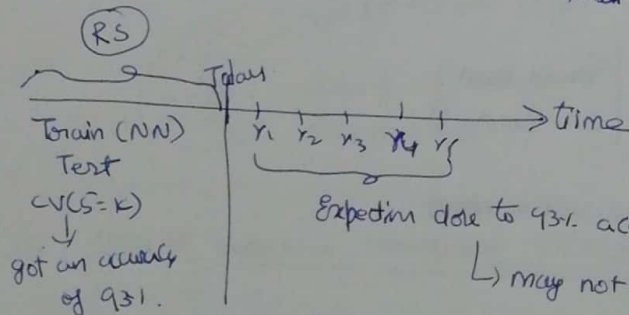 RS
Today
time
Train (NN)
Test
CV(5=K)
got an accuracy
of 93%.
r1 r2 r3 r4 r5
Expectin close to 93%. ac
may not